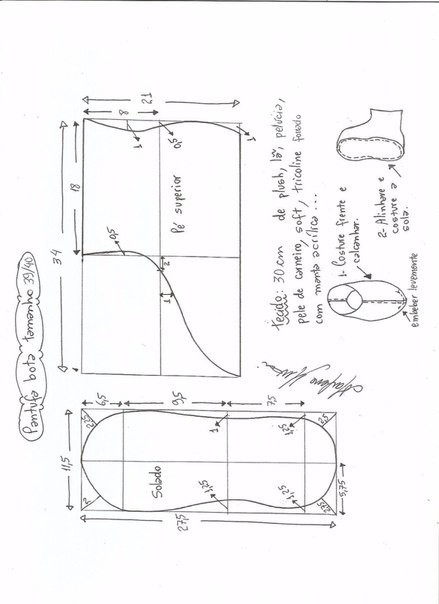 Pantufa bota tamanho 39/40
34
18
21
8
1
0,5
1
0,5
2
1
Pé superior
tecido: 30 cm de plush, lã, pelúcia,
pele de carneiro, soft, tricoline forrado
com manta acrílica...
1- Costure frente e
calcanhar.
2- Alinhave e
costure a
sola.
embeber levemente
11,5
6,5
9,5
7,5
27,5
5,75
Solado
2,5
2
1
1,25
2,5